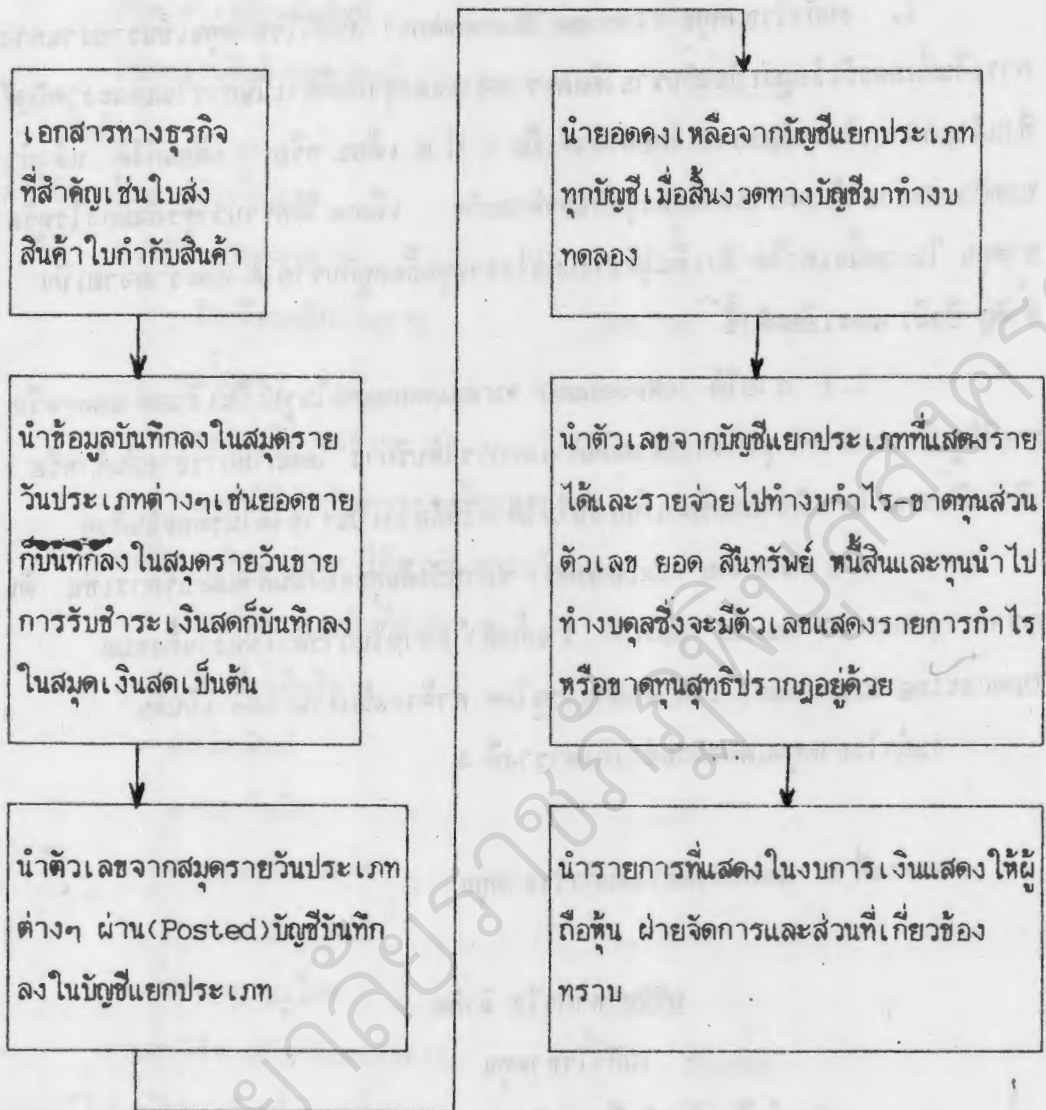 เอกสารทางธุรกิจ
ที่สำคัญเช่นใบส่ง
สินค้าใบกำกับสินค้า
นำข้อมูลบันทึกลงในสมุดราย
วันประเภทต่างๆเช่นยอดขาย
ก็บันทึกลงในสมุดรายวันขาย
การรับชำระเงินสดก็บันทึกลง
ในสมุดเงินสดเป็นต้น
นำตัวเลขจากสมุดรายวันประเภท
ต่างๆ ผ่าน(Posted)บัญชีบันทึก
ลงในบัญชีแยกประเภท
นำยอดคงเหลือจากบัญชีแยกประเภท
ทุกบัญชีเมื่อสิ้นงวดทางบัญชีมาทำงบ
ทดลอง
นำตัวเลขจากบัญชีแยกประเภทที่แสดงราย
ได้และรายจ่ายไปทำงบกำไร-ขาดทุนส่วน
ตัวเลข ยอด สินทรัพย์ หนี้สินและทุนนำไป
ทำงบดุลซึ่งจะมีตัวเลขแสดงรายการกำไร
หรือขาดทุนสุทธิปรากฏอยู่ด้วย
นำรายการที่แสดงในงบการเงินแสดงให้ผู้
ถือหุ้น ฝ่ายจัดการและส่วนที่เกี่ยวข้อง
ทราบ